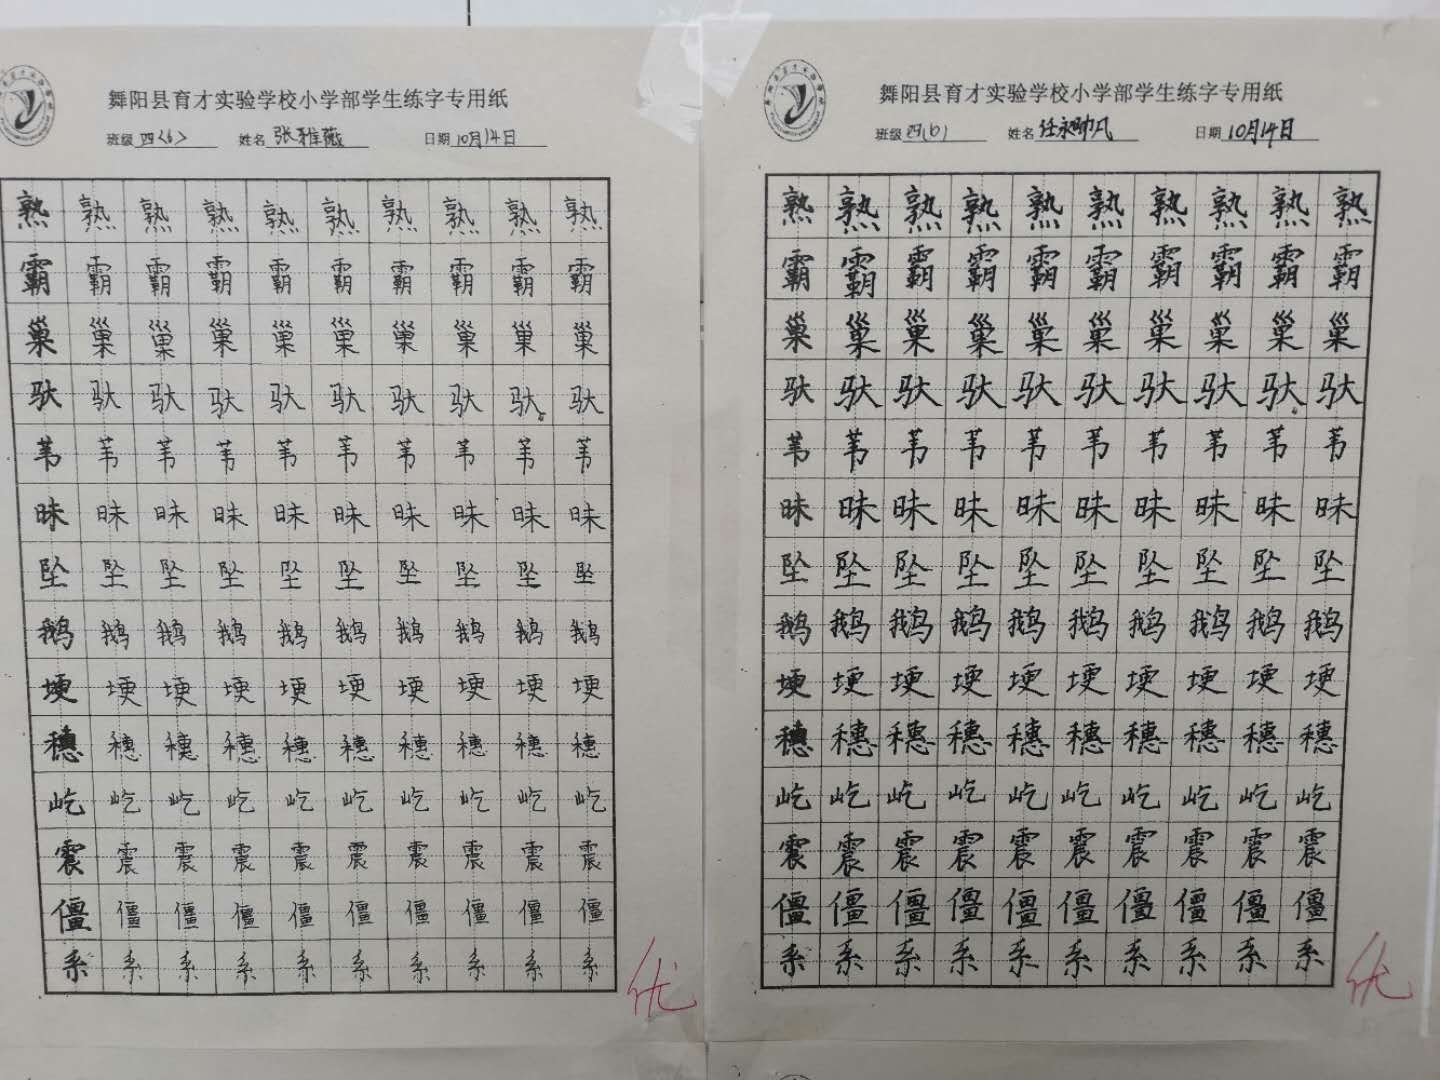 舞阳县育才实验学校小学部学生练字专用纸
班级 四<6> 姓名 张雅薇 日期 10月14日
熟 熟 熟 熟 熟 熟 熟 熟 熟 熟
霸 霸 霸 霸 霸 霸 霸 霸 霸 霸
巢 巢 巢 巢 巢 巢 巢 巢 巢 巢
驮 驮 驮 驮 驮 驮 驮 驮 驮 驮
苇 苇 苇 苇 苇 苇 苇 苇 苇 苇
昧 昧 昧 昧 昧 昧 昧 昧 昧 昧
坠 坠 坠 坠 坠 坠 坠 坠 坠 坠
鹅 鹅 鹅 鹅 鹅 鹅 鹅 鹅 鹅 鹅
埂 埂 埂 埂 埂 埂 埂 埂 埂 埂
穗 穗 穗 穗 穗 穗 穗 穗 穗 穗
屹 屹 屹 屹 屹 屹 屹 屹 屹 屹
震 震 震 震 震 震 震 震 震 震
僵 僵 僵 僵 僵 僵 僵 僵 僵 僵
系 系 系 系 系 系 系 系 系 系
优
舞阳县育才实验学校小学部学生练字专用纸
班级 四(6) 姓名 任永帅凡 日期 10月14日
熟 熟 熟 熟 熟 熟 熟 熟 熟 熟
霸 霸 霸 霸 霸 霸 霸 霸 霸 霸
巢 巢 巢 巢 巢 巢 巢 巢 巢 巢
驮 驮 驮 驮 驮 驮 驮 驮 驮 驮
苇 苇 苇 苇 苇 苇 苇 苇 苇 苇
昧 昧 昧 昧 昧 昧 昧 昧 昧 昧
坠 坠 坠 坠 坠 坠 坠 坠 坠 坠
鹅 鹅 鹅 鹅 鹅 鹅 鹅 鹅 鹅 鹅
埂 埂 埂 埂 埂 埂 埂 埂 埂 埂
穗 穗 穗 穗 穗 穗 穗 穗 穗 穗
屹 屹 屹 屹 屹 屹 屹 屹 屹 屹
震 震 震 震 震 震 震 震 震 震
僵 僵 僵 僵 僵 僵 僵 僵 僵 僵
系 系 系 系 系 系 系 系 系 系
优